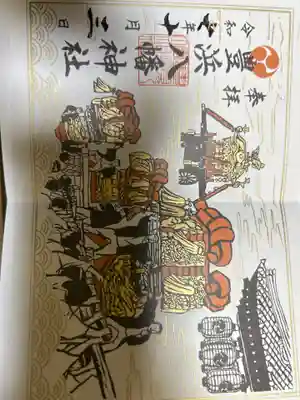 奉拝
豊浜八幡神社
令和七年十月日